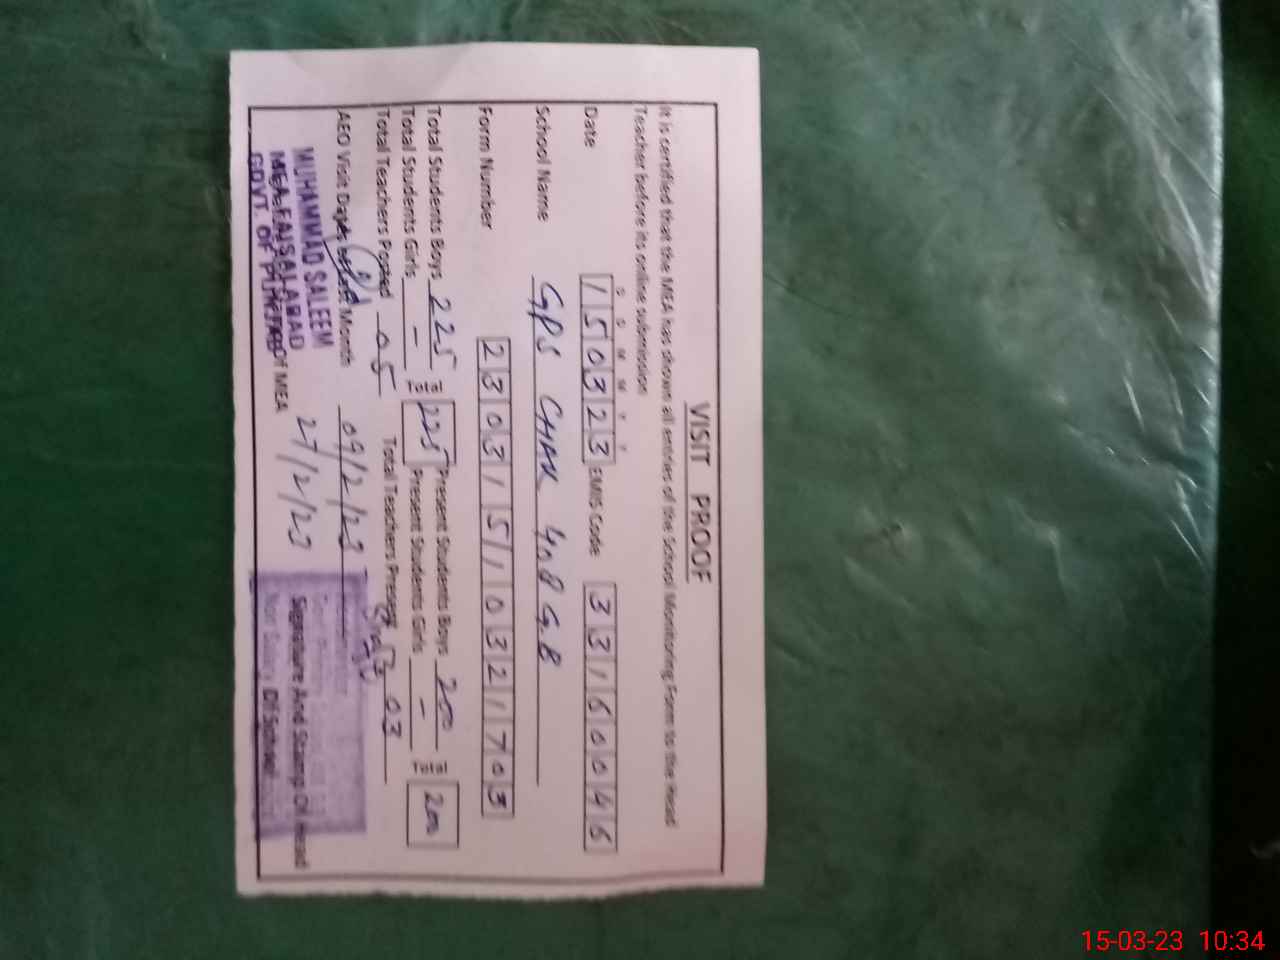 VISIT PROOF
It is certified that the MEA has shown all entries of the School Monitoring Form to the Head
Teacher before its online submission
D D M M Y Y
Date 150323 EMIS Code 33160046
School Name GPS CHAK 408 G.B
Form Number 23031510321703
Total Students Boys 225 Total 225 Present Students Boys 200 Total 200
Total Students Girls - Present Students Girls -
Total Teachers Posted 05 Total Teachers Present 03
AEO Visit Dates Month 09/2/23
27/2/23
MUHAMMAD SALEEM
MEA FAISALABAD
GOVT. OF PUNJAB
Of MEA
Signature And Stamp Of Head
Of School
15-03-23 10:34